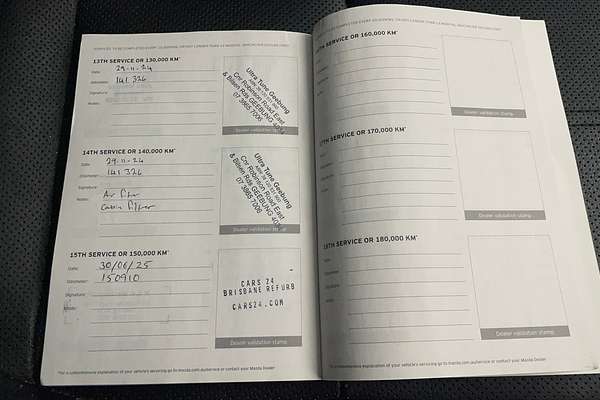 13TH SERVICE OR 130,000 KM*
Date: 29-11-24
Odometer: 141 326
Signature:
Notes:
Ultra Tune Geebung
Cnr Robinson Road East
& Bilsen Rde GEEBUNG
07 3865 7006
Dealer validation stamp
14TH SERVICE OR 140,000 KM*
Date: 29-11-24
Odometer: 141 326
Signature:
Notes: Air filter
Cabin filter
Ultra Tune Geebung
Cnr Robinson Road East
& Bilsen Rde GEEBUNG
07 3865 7006
Dealer validation stamp
15TH SERVICE OR 150,000 KM*
Date: 30/06/25
Odometer: 150910
Signature:
Notes:
CARS 24
BRISBANE REFURB
CARS24.COM
Dealer validation stamp
*For a comprehensive explanation of your vehicle's servicing go to mazda.com.au/service or contact your Mazda Dealer
SERVICE OR 160,000 KM*
Date:
Odometer:
Signature:
Notes:
Dealer validation stamp
17TH SERVICE OR 170,000 KM*
Date:
Odometer:
Signature:
Notes:
Dealer validation stamp
18TH SERVICE OR 180,000 KM*
Date:
Odometer:
Signature:
Notes:
Dealer validation stamp
*For a comprehensive explanation of your vehicle's servicing go to mazda.com.au/service or contact your Mazda Dealer